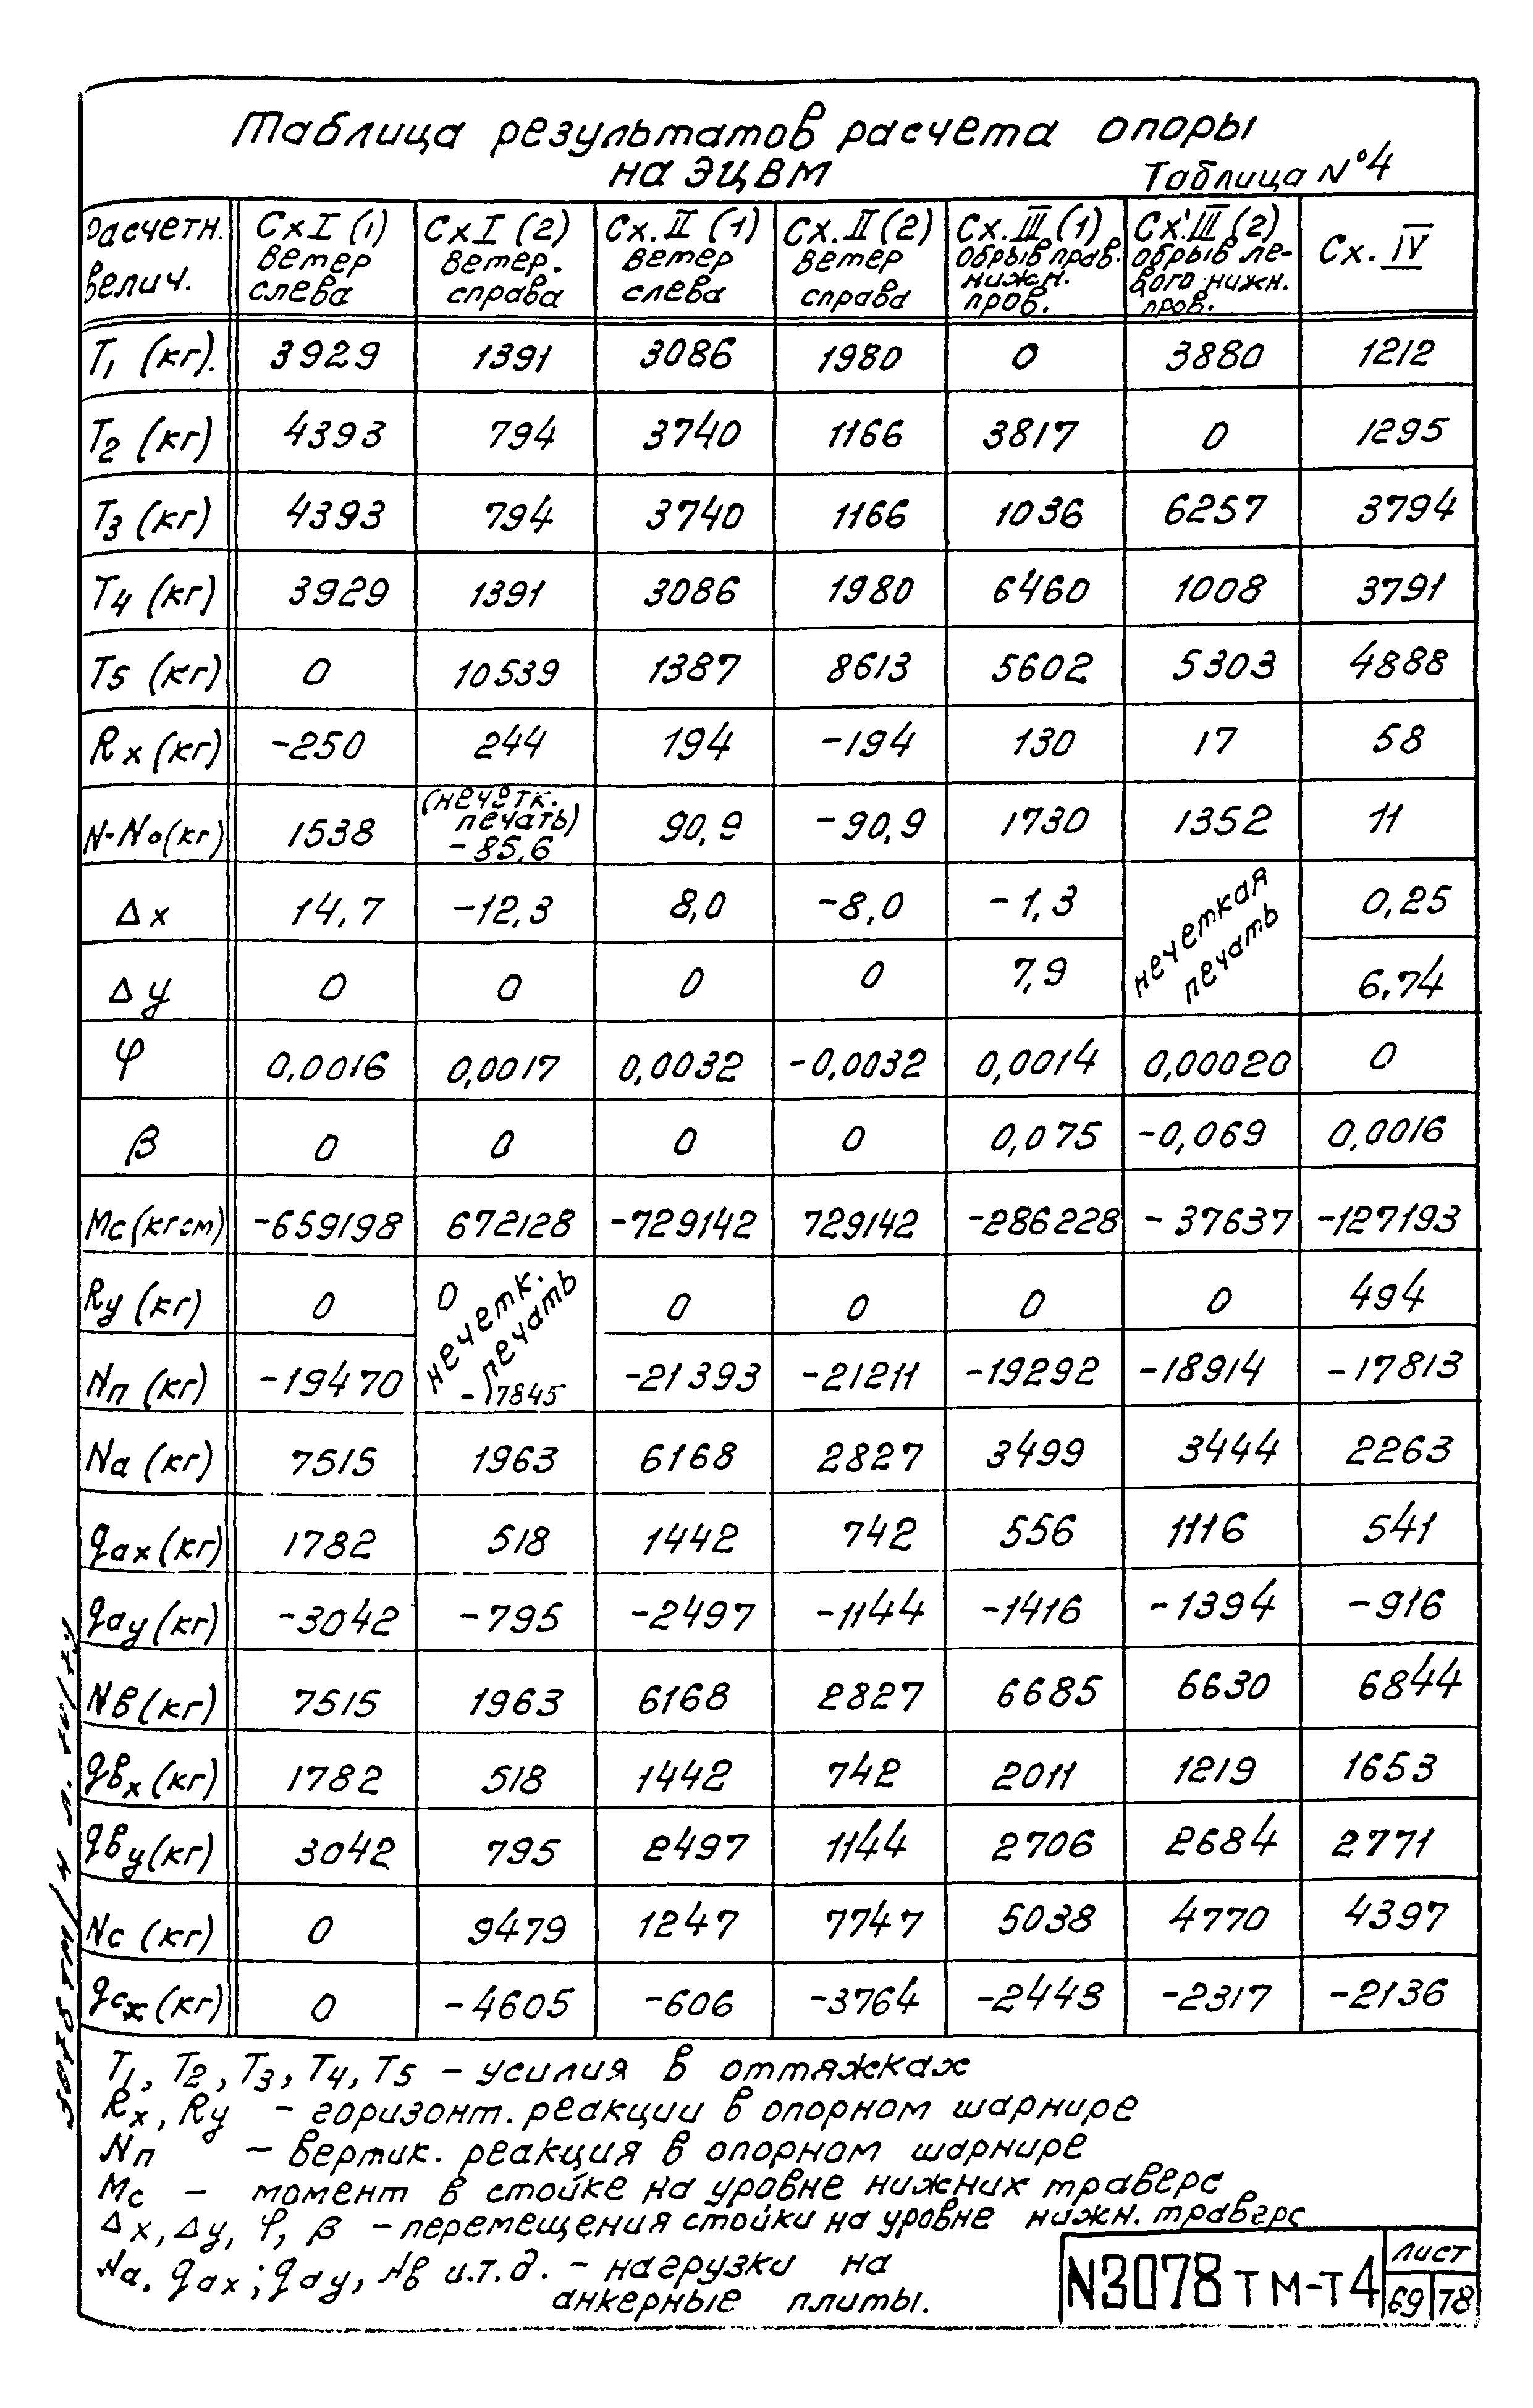 Таблица результатов расчета опоры
на ЭЦВМ
Таблица N°4
Расчетн. велич. | Сх I (1) ветер слева | Сх I (2) ветер. справа | Сх. II (1) ветер слева | Сх. II (2) ветер справа | Сх. III (1) обрыв прав. нижн. пров. | Сх. III (2) обрыв левого нижн. пров. | Сх. IV
T1 (кг). | 3929 | 1391 | 3086 | 1980 | 0 | 3880 | 1212
T2 (кг) | 4393 | 794 | 3740 | 1166 | 3817 | 0 | 1295
T3 (кг) | 4393 | 794 | 3740 | 1166 | 1036 | 6257 | 3794
T4 (кг) | 3929 | 1391 | 3086 | 1980 | 6460 | 1008 | 3791
T5 (кг) | 0 | 10539 | 1387 | 8613 | 5602 | 5303 | 4888
Rх (кг) | -250 | 244 | 194 | -194 | 130 | 17 | 58
N-No (кг) | 1538 | (нечетк. печать) -85,6 | 90,9 | -90,9 | 1730 | 1352 | 11
Δх | 14,7 | -12,3 | 8,0 | -8,0 | -1,3 | нечеткая печать | 0,25
Δу | 0 | 0 | 0 | 0 | 7,9 | 6,74
φ | 0,0016 | 0,0017 | 0,0032 | -0,0032 | 0,0014 | 0,00020 | 0
β | 0 | 0 | 0 | 0 | 0,075 | -0,069 | 0,0016
Мс (кгсм) | -659198 | 672128 | -729142 | 729142 | -286228 | -37637 | -127193
Rу (кг) | 0 | 0 нечетк. печать | 0 | 0 | 0 | 0 | 494
Nп (кг) | -19470 | -17845 | -21393 | -21211 | -19292 | -18914 | -17813
Nа (кг) | 7515 | 1963 | 6168 | 2827 | 3499 | 3444 | 2263
qах (кг) | 1782 | 518 | 1442 | 742 | 556 | 1116 | 541
qау (кг) | -3042 | -795 | -2497 | -1144 | -1416 | -1394 | -916
Nв (кг) | 7515 | 1963 | 6168 | 2827 | 6685 | 6630 | 6844
qвх (кг) | 1782 | 518 | 1442 | 742 | 2011 | 1219 | 1653
qву (кг) | 3042 | 795 | 2497 | 1144 | 2706 | 2684 | 2771
Nс (кг) | 0 | 9479 | 1247 | 7747 | 5038 | 4770 | 4397
qсх (кг) | 0 | -4605 | -606 | -3764 | -2448 | -2317 | -2136
T1, T2, T3, T4, T5 - усилия в оттяжках
Rх, Rу - горизонт. реакции в опорном шарнире
Nп - вертик. реакция в опорном шарнире
Мс - момент в стойке на уровне нижних траверс
Δх, Δу, φ, β - перемещения стойки на уровне нижн. траверс
Nа, qах; qау, Nв и.т.д. - нагрузки на
анкерные плиты.
N3078тм-т4
Лист
69 | 78